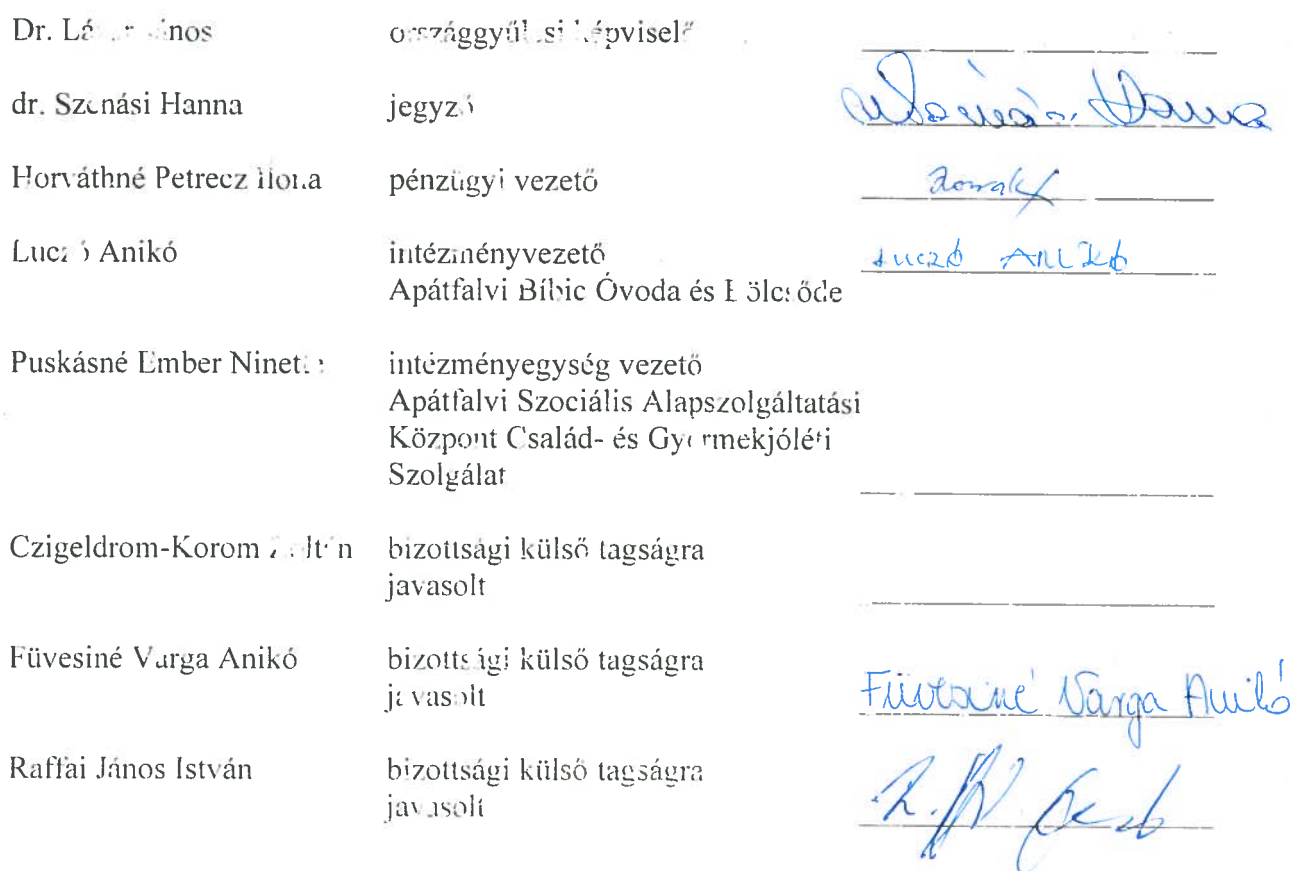 Dr. János országgyűlési képviselő
dr. Szenási Hanna jegyző
Horváthné Petrecz Ilona pénzügyi vezető
Luczó Anikó intézményvezető Luczó Anikó
Apátfalvi Bíbic Óvoda és Bölcsőde
Puskásné Ember Ninetta intézményegység vezető
Apátfalvi Szociális Alapszolgáltatási
Központ Család- és Gyermekjóléti
Szolgálat
Czigeldrom-Korom Zoltán bizottsági külső tagságra
javasolt
Füvesiné Varga Anikó bizottsági külső tagságra
javasolt Füvesiné Varga Anikó
Raffai János István bizottsági külső tagságra
javasolt